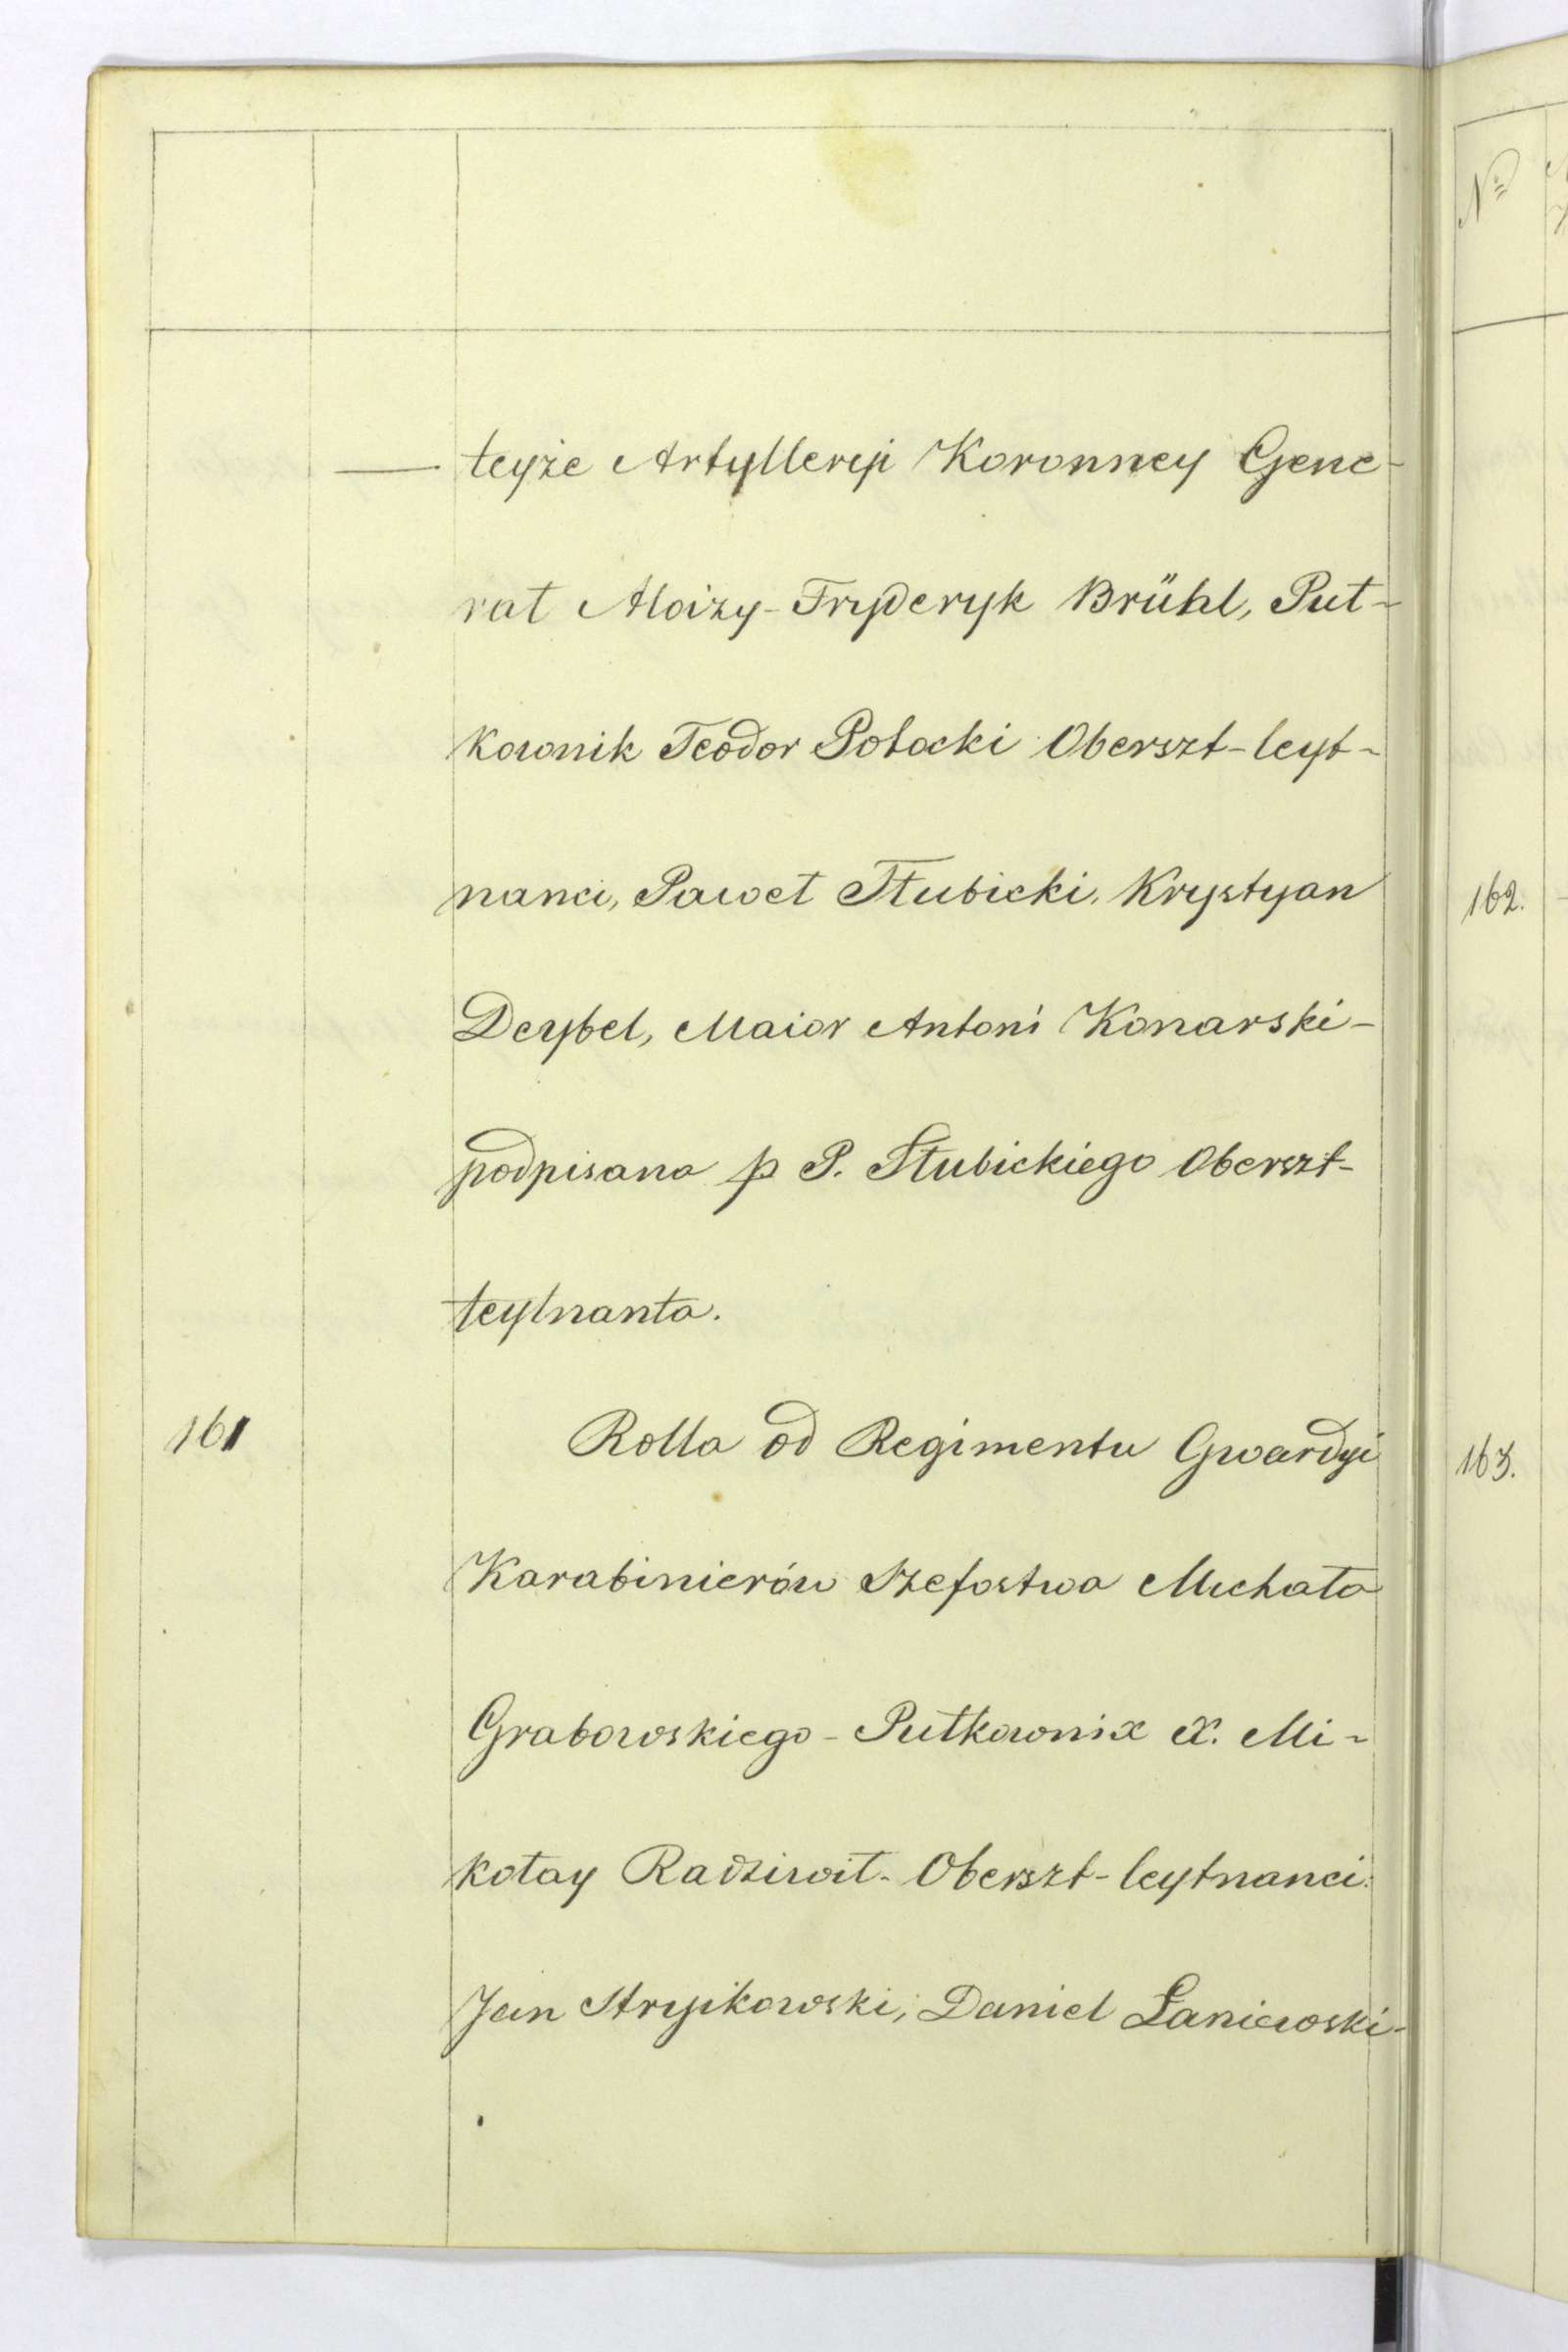 — teyże Artylleryi Koronney Gene-
rał Aloizy-Fryderyk Brühl, Puł-
kownik Teodor Potocki Oberszt-leyt-
nanci, Paweł Słubicki, Krystyan
Deybel, Maior Antoni Konarski-
podpisana p P. Słubickiego Oberszt-
leytnanta.
161 Rolla od Regimentu Gwardyi
Karabinierów Szefostwa Michała
Grabowskiego - Pułkownik X. Mi-
kołay Radziwił- Oberszt-leytnanci:
Jan Stryikowski, Daniel Łaniewski-
№
162.
163.